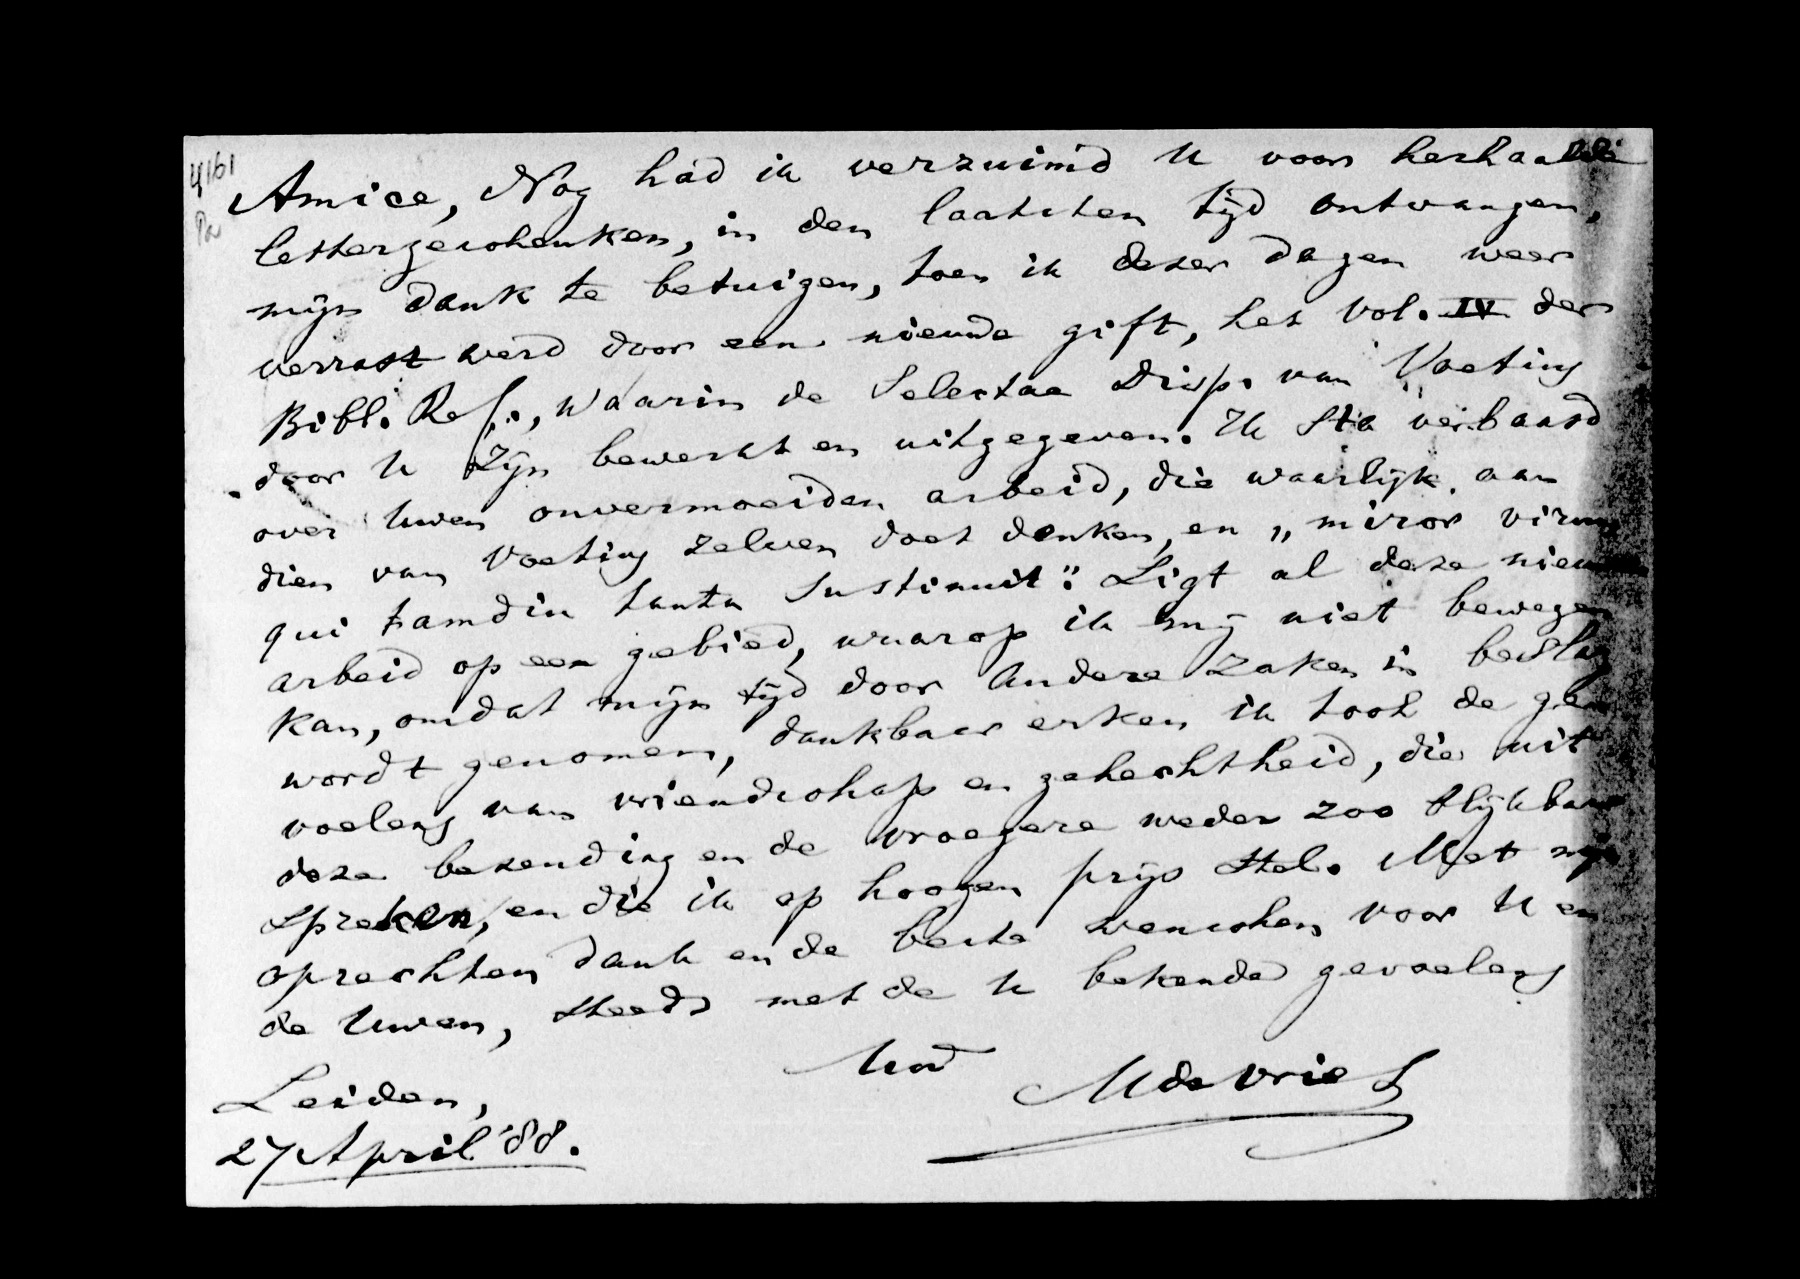 4161
Pa
Amice, Nog had ik verzuimd U voor herhaalde
lettergeschenken, in den laatsten tijd ontvangen,
mijn dank te betuigen, toen ik dezer dagen weer
verrast werd door een nieuwe gift, het Vol. IV der
Bibl. Ref., waarin de Selectae Disp. van Voetius
door U zijn bewerkt en uitgegeven. Ik sta verbaasd
over Uwen onvermoeiden arbeid, die waarlijk aan
dien van Voetius zelven doet denken, en „miror virum
qui tamdiu tanta sustinuit". Ligt al deze nieuwe
arbeid op een gebied, waarop ik mij niet bewegen
kan, omdat mijn tijd door andere zaken in beslag
wordt genomen, dankbaar erken ik toch de ge-
voelens van vriendschap en gehechtheid, die uit
deze bezending en de vroegere weder zoo blijkbaar
spreken, en die ik op hoogen prijs stel. Met mijn
oprechten dank en de beste wenschen voor U en
de Uwen, steeds met de U bekende gevoelens
M de Vries
Leiden,
27 April '88.